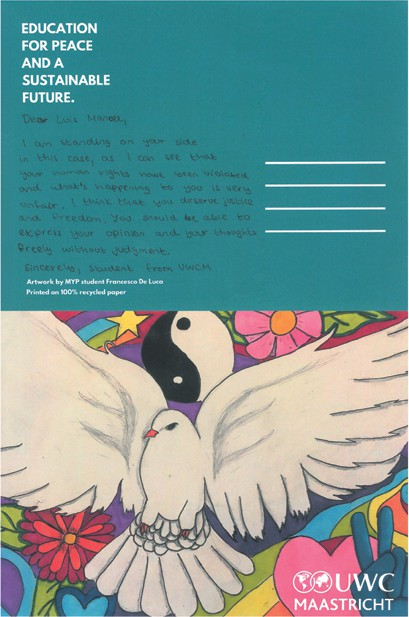 EDUCATION
FOR PEACE
AND A
SUSTAINABLE
FUTURE.
Dear Luis Manuel,
I am standing on your side
in this case, as I can see that
your human rights have been violated
and what's happening to you is very
unfair. I think that you deserve justice
and freedom. You should be able to
express your opinion and your thoughts
freely without judgment.
Sincerely, student from UWCM
Artwork by MYP student Francesco De Luca
Printed on 100% recycled paper
UWC
MAASTRICHT